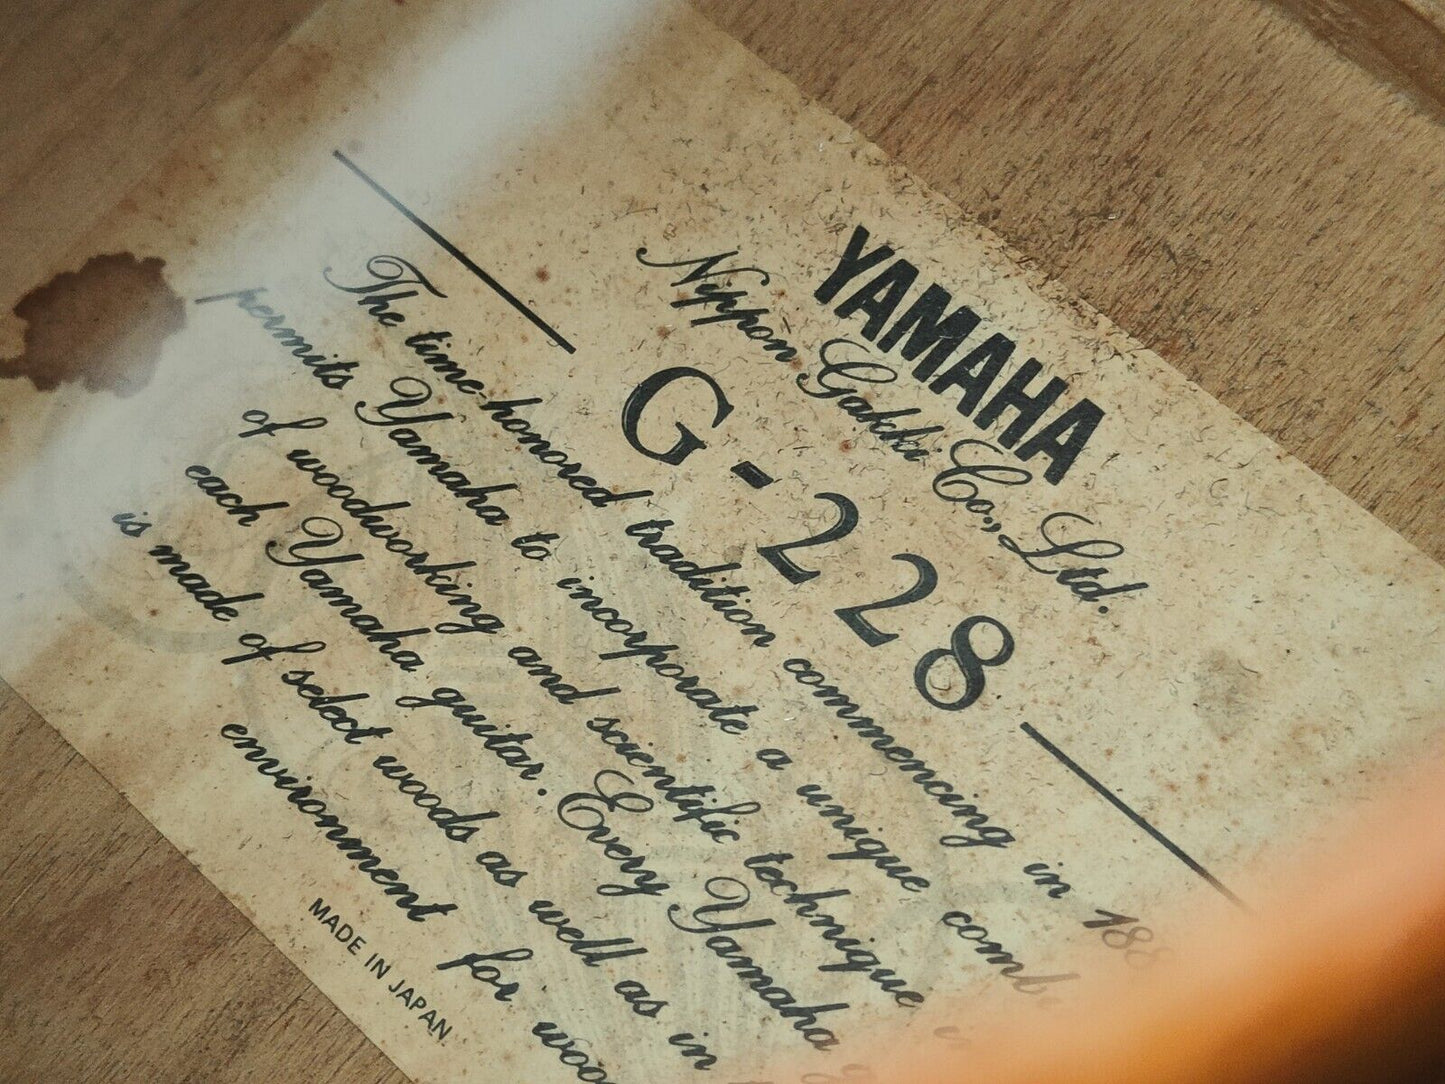 YAMAHA
Nippon Gakki Co., Ltd.
G-228
The time-honored tradition commencing in
permits Yamaha to incorporate a unique
of woodworking and scientific technique
each Yamaha guitar. Every Yamaha
is made of select woods as well as in
environment for
MADE IN JAPAN